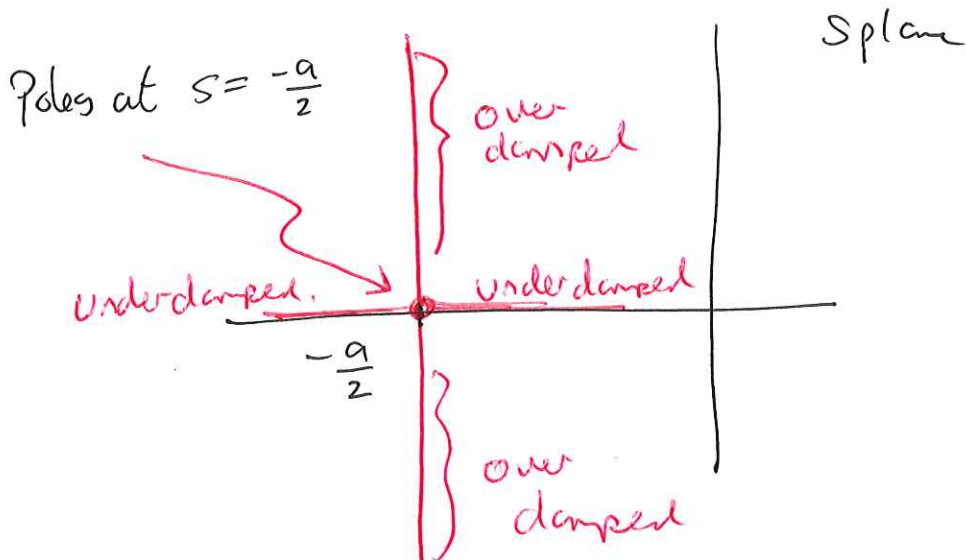 S plane
Poles at s = -a/2
over
damped
underdamped.
underdamped
-a/2
over
damped